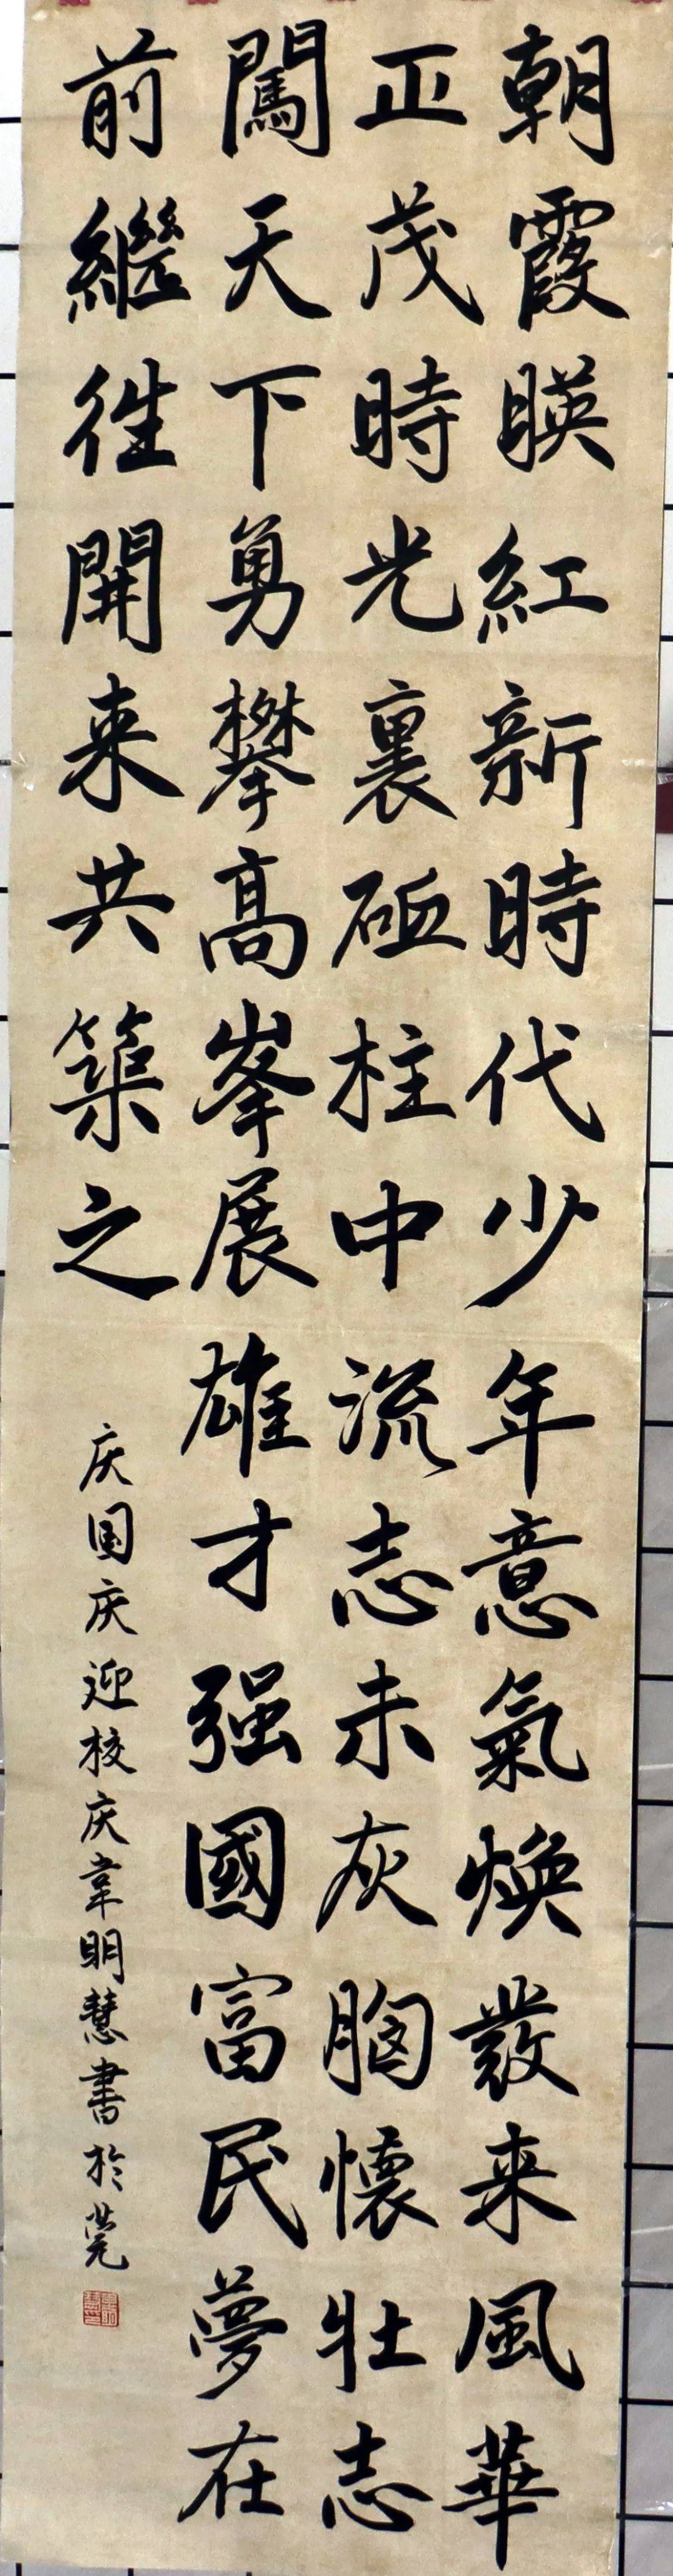 朝霞暎紅新時代少年意氣煥發来風華
正茂時光裏砥柱中流志未灰胸懷壮志
闖天下勇攀高峯展雄才强國富民夢在
前繼徃開来共築之
庆国庆迎校庆韋明慧書於莞